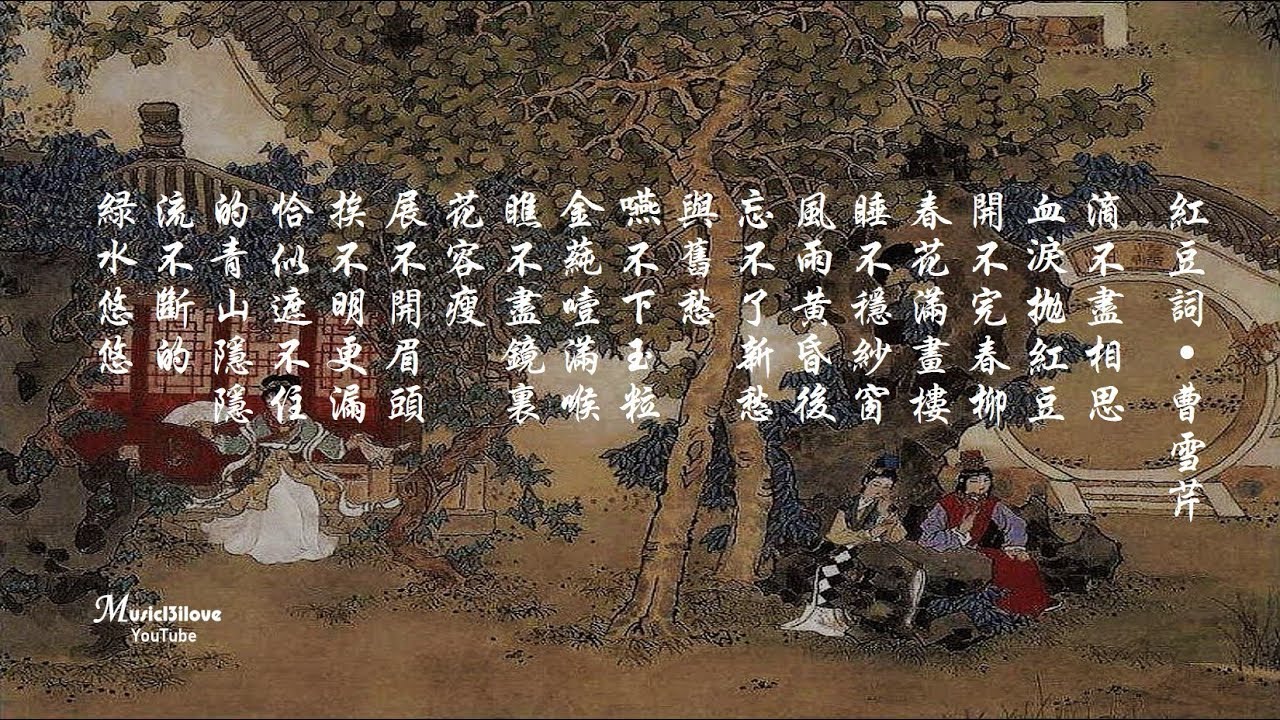 紅豆詞•曹雪芹
滴不盡相思
血淚拋紅豆
開不完春柳
春花滿畫樓
睡不穩紗窗
風雨黃昏後
忘不了新愁
與舊愁
嚥不下玉粒
金蒓噎滿喉
瞧不盡鏡裏
花容瘦
展不開眉頭
挨不明更漏
恰似遮不住
的青山隱隱
流不斷的
綠水悠悠
Music13ilove
YouTube